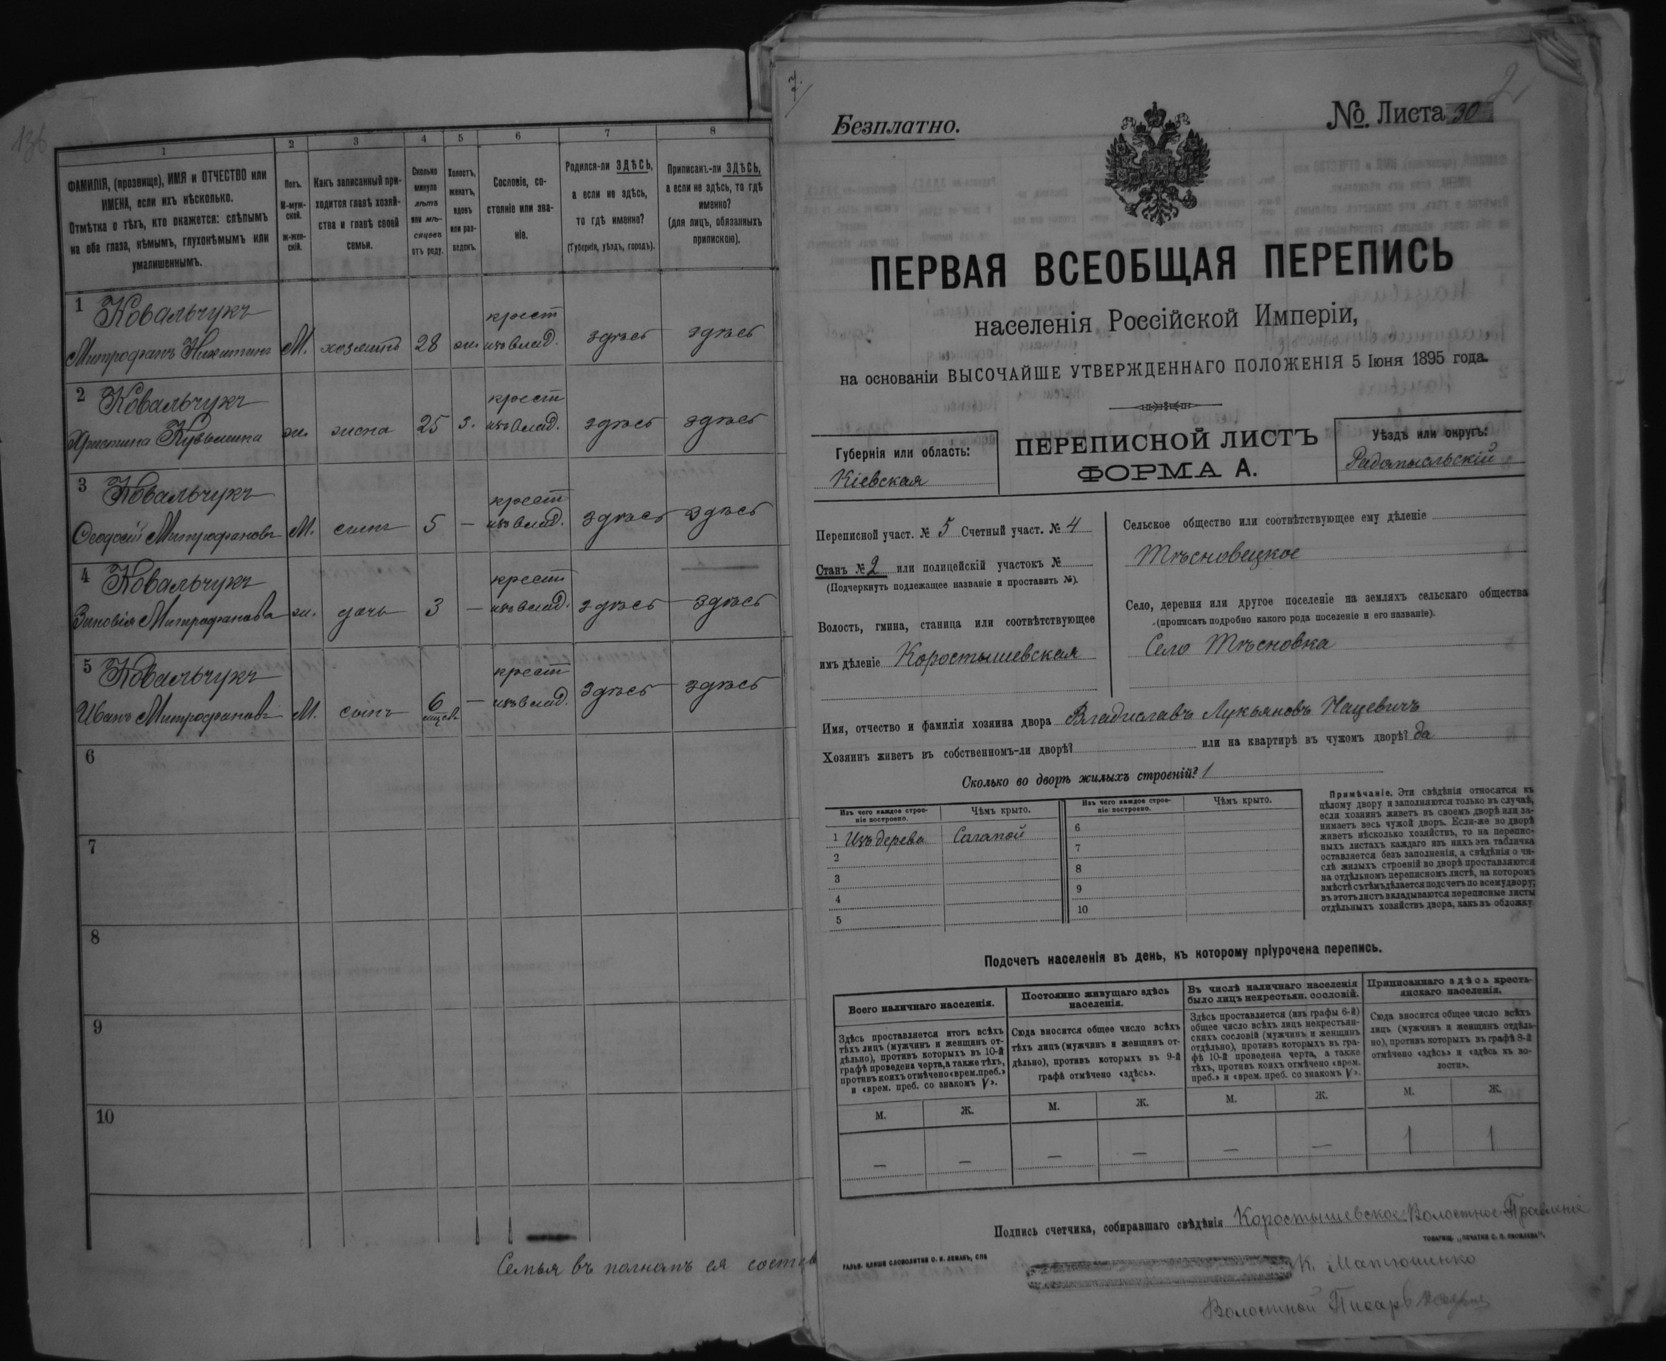 136
1
2
3
4
5
6
7
8
ФАМИЛІЯ, (прозвище), ИМЯ и ОТЧЕСТВО или
ИМЕНА, если ихъ нѣсколько.
Отмѣтка о тѣхъ, кто окажется: слѣпымъ
на оба глаза, нѣмымъ, глухонѣмымъ или
умалишеннымъ.
Полъ.
М-муж-
ской.
ж-жен-
скій.
Какъ записанный при-
ходится главѣ хозяй-
ства и главѣ своей
семьи.
Сколько
минуло
лѣтъ
или мѣ-
сяцевъ
отъ роду.
Холостъ,
женатъ,
вдовъ
или раз-
веденъ.
Сословіе, со-
стояніе или зва-
ніе.
Родился-ли ЗДѢСЬ,
а если не здѣсь,
то гдѣ именно?
(Губернія, уѣздъ, городъ).
Приписанъ-ли ЗДѢСЬ,
а если не здѣсь, то гдѣ
именно?
(для лицъ, обязанныхъ
припискою).
1 Ковальчукъ
Митрофанъ Никитинъ М. хозяинъ 28 ж. крест изъ влад. здѣсь здѣсь
2 Ковальчукъ
Христина Кузьмина ж. жена 25 з. крест изъ влад. здѣсь здѣсь
3 Ковальчукъ
Ѳеодосій Митрофановъ М. сынъ 5 — крест изъ влад. здѣсь здѣсь
4 Ковальчукъ
Зиновія Митрофанова ж. дочь 3 — крест изъ влад. здѣсь здѣсь
5 Ковальчукъ
Иванъ Митрофановъ М. сынъ 6 мѣсяц. — крест изъ влад. здѣсь здѣсь
6
7
8
9
10
Семья въ полномъ ея состав
7.
2
Безплатно.
№ Листа 30
ПЕРВАЯ ВСЕОБЩАЯ ПЕРЕПИСЬ
населенія Россійской Имперіи,
на основаніи ВЫСОЧАЙШЕ УТВЕРЖДЕННАГО ПОЛОЖЕНІЯ 5 Іюня 1895 года.
Губернія или область:
Кіевская
ПЕРЕПИСНОЙ ЛИСТЪ
ФОРМА А.
Уѣздъ или округъ:
Радомысльскій
Переписной участ. № 5 Счетный участ. № 4
Станъ № 2 или полицейскій участокъ №
(Подчеркнуть подлежащее названіе и проставить №).
Волость, гмина, станица или соотвѣтствующее
имъ дѣленіе Коростышевская
Сельское общество или соотвѣтствующее ему дѣленіе
Тѣсновецкое
Село, деревня или другое поселеніе на земляхъ сельскаго общества
(прописать подробно какого рода поселеніе и его названіе).
Село Тѣсновка
Имя, отчество и фамилія хозяина двора Владиславъ Лукьяновъ Нацевичъ
Хозяинъ живетъ въ собственномъ-ли дворѣ? или на квартирѣ въ чужомъ дворѣ? да
Сколько во дворѣ жилыхъ строеній? 1
Изъ чего каждое строе-
ніе построено.
Чѣмъ крыто.
Изъ чего каждое строе-
ніе построено.
Чѣмъ крыто.
1 Изъ дерева Соломой
2
3
4
5
6
7
8
9
10
Примѣчаніе. Эти свѣдѣнія относятся къ
цѣлому двору и заполняются только въ случаѣ,
если хозяинъ живетъ въ своемъ дворѣ или за-
нимаетъ весь чужой дворъ. Если-же во дворѣ
живетъ нѣсколько хозяйствъ, то на перепис-
ныхъ листахъ каждаго изъ нихъ эта табличка
оставляется безъ заполненія, а свѣдѣнія о чи-
слѣ жилыхъ строеній во дворѣ проставляются
на отдѣльномъ переписномъ листѣ, на которомъ
вмѣстѣ съ тѣмъ дѣлается подсчетъ по всему двору;
въ этотъ листъ вкладываются переписные листы
отдѣльныхъ хозяйствъ двора, какъ въ обложку.
Подсчетъ населенія въ день, къ которому пріурочена перепись.
Всего наличнаго населенія.
Здѣсь проставляется итогъ всѣхъ
тѣхъ лицъ (мужчинъ и женщинъ от-
дѣльно), противъ которыхъ въ 10-й
графѣ проведена черта, а также тѣхъ,
противъ коихъ отмѣчено «врем. преб.»
и «врем. преб. со знакомъ V».
Постоянно живущаго здѣсь
населенія.
Сюда вносится общее число всѣхъ
тѣхъ лицъ (мужчинъ и женщинъ от-
дѣльно), противъ которыхъ въ 9-й
графѣ отмѣчено «здѣсь».
Въ числѣ наличнаго населенія
было лицъ некрестьян. сословій.
Здѣсь проставляется (изъ графы 6-й)
общее число всѣхъ лицъ некрестьян-
скихъ сословій (мужчинъ и женщинъ
отдѣльно), противъ которыхъ въ гра-
фѣ 10-й проведена черта, а также
тѣхъ, противъ коихъ отмѣчено «врем.
преб.» и «врем. преб. со знакомъ V».
Приписаннаго здѣсь кресть-
янскаго населенія.
Сюда вносится общее число всѣхъ
лицъ (мужчинъ и женщинъ отдѣль-
но), противъ которыхъ въ графѣ 8-й
отмѣчено «здѣсь» и «здѣсь въ во-
лости».
М. Ж. М. Ж. М. Ж. М. Ж.
— — — — — — 1 1
Подпись счетчика, собиравшаго свѣдѣнія Коростышевское Волостное Правленіе
К. Матюшенко
Волостной Писарь